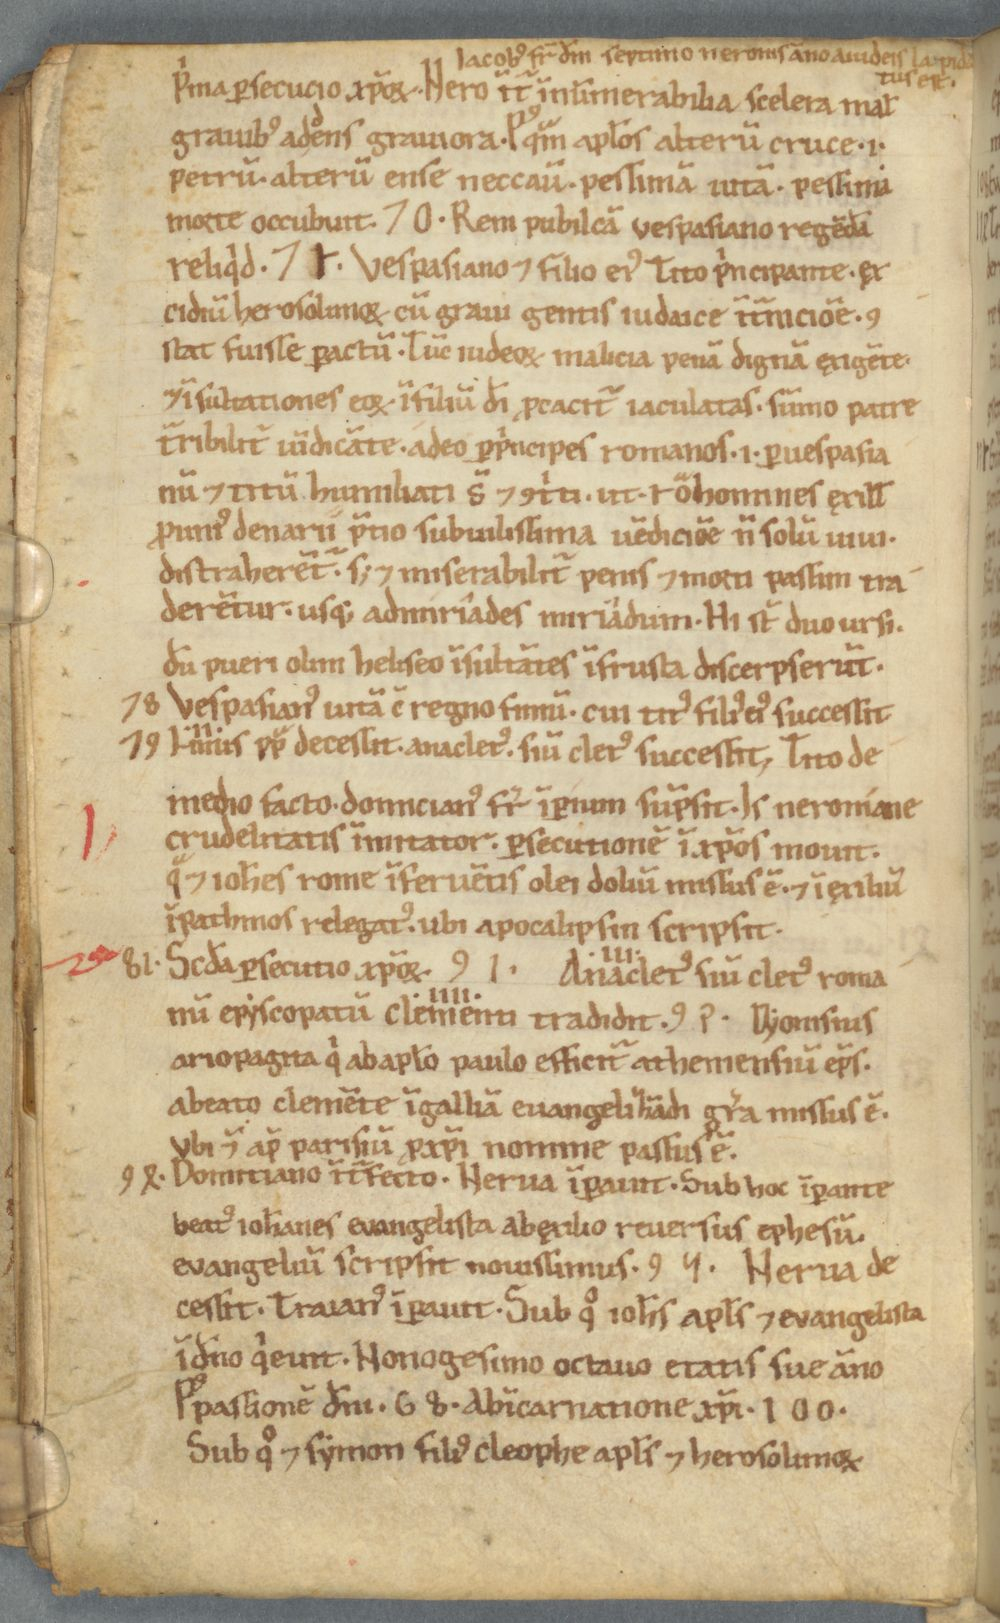 Iacob᷒ fr̄ dn̄i septimo neronis āno a iudeis lapida
tus est.
P̍ma p̲secucio xp̄oꝝ. Nero int̄ īnumerabilia scelera mal
grauib᷒ addens grauiora. Pꝰ qm̄ apl̄os alterū cruce .i.
petrū. alterū ense neccaū. pessimā uitā. pessima
morte occubuit. 70. Rem publicā vespasiano regēdā
reliq̍d. 7 . Vespasiano ⁊ filio ei᷒ Tito p̍ncipante. ex
cidiū herosolimoꝝ cū graui gentis iudaice īt̄niciōe. ꝯ
stat fuisse p̲actū. Tūc iudeoꝝ malicia penā dignā exigēte.
⁊ īsultationes eoꝝ ī filiū dī ꝓcacit̄ iaculatas. sūmo patre
t̄ribilit̄ uīdicāte. adeo p̲ p̍ncipes romanos .i. p̲ uespasia
nū ⁊ titū humiliati s̄ ⁊ ꝯt̍ti. ut. homines exill
ꝓ uni᷒ denarii p̄tio sub uilissima uēdiciōe n̄ solū uiui.
distraherēt̄. s; ⁊ miserabilit̄ penis ⁊ morti passim tra
derētur. usq; ad miríades miríadum. Hi st̄ duo ursi.
dū pueri olim heliseo īsultātes ī frusta discerpserūt.
78 Vespasian᷒ uitā c̄ regno finiū. cui tit᷒ fili᷒ ei᷒ successit
79 Linus pp̄ decessit. anaclet᷒. siū clet᷒ successit, Tito de
medio facto. domician᷒ fr̄ īp̲ium sūp̲sit. Is neroniane
crudelitatis īmitator. p̲secutionē ī xp̄os mouit.
q̄ ⁊ ioh̄es rome ī feruētis olei doliū missus ē. ⁊ ī exiliū
ī pathmos relegat᷒. ubi apocalipsin scripsit.
81. Scd̄a p̲secutio xp̄oꝝ. 9 1. .III. Anaclet᷒ siū clet᷒ roma
nū episcopatū .IIII. clementi tradidit. 9 2. Dyonisius
ariopagita q̍ ab apl̄o paulo efficit̄ atheniensiū ep̄s.
a beato clemēte ī galliā euangelizādi gr̄a missus ē.
Vbi ⁊ ap̄ parisiū ꝓ xp̄i nomine passus ē.
9 . Domitiano īt̄fecto. Nerua īp̲auit. Sub hoc īp̲ante
beat᷒ iohanes evangelista ab exilio reuersus ephesū.
evangeliū scripsit nouissimus. 9 . Nerua de
cessit. Traian᷒ īp̲auit. Sub qͦ ioh̄s apl̄s ⁊ evangelista
ī dn̄o q̍euit. Nonogesimo octauo etatis sue āno
Pꝰ passionē dn̄i. 6 8. Ab īcarnatione xp̄i. 1 0 0.
Sub qͦ ⁊ symon fili᷒ cleophe apl̄s ⁊ herosolimoꝝ